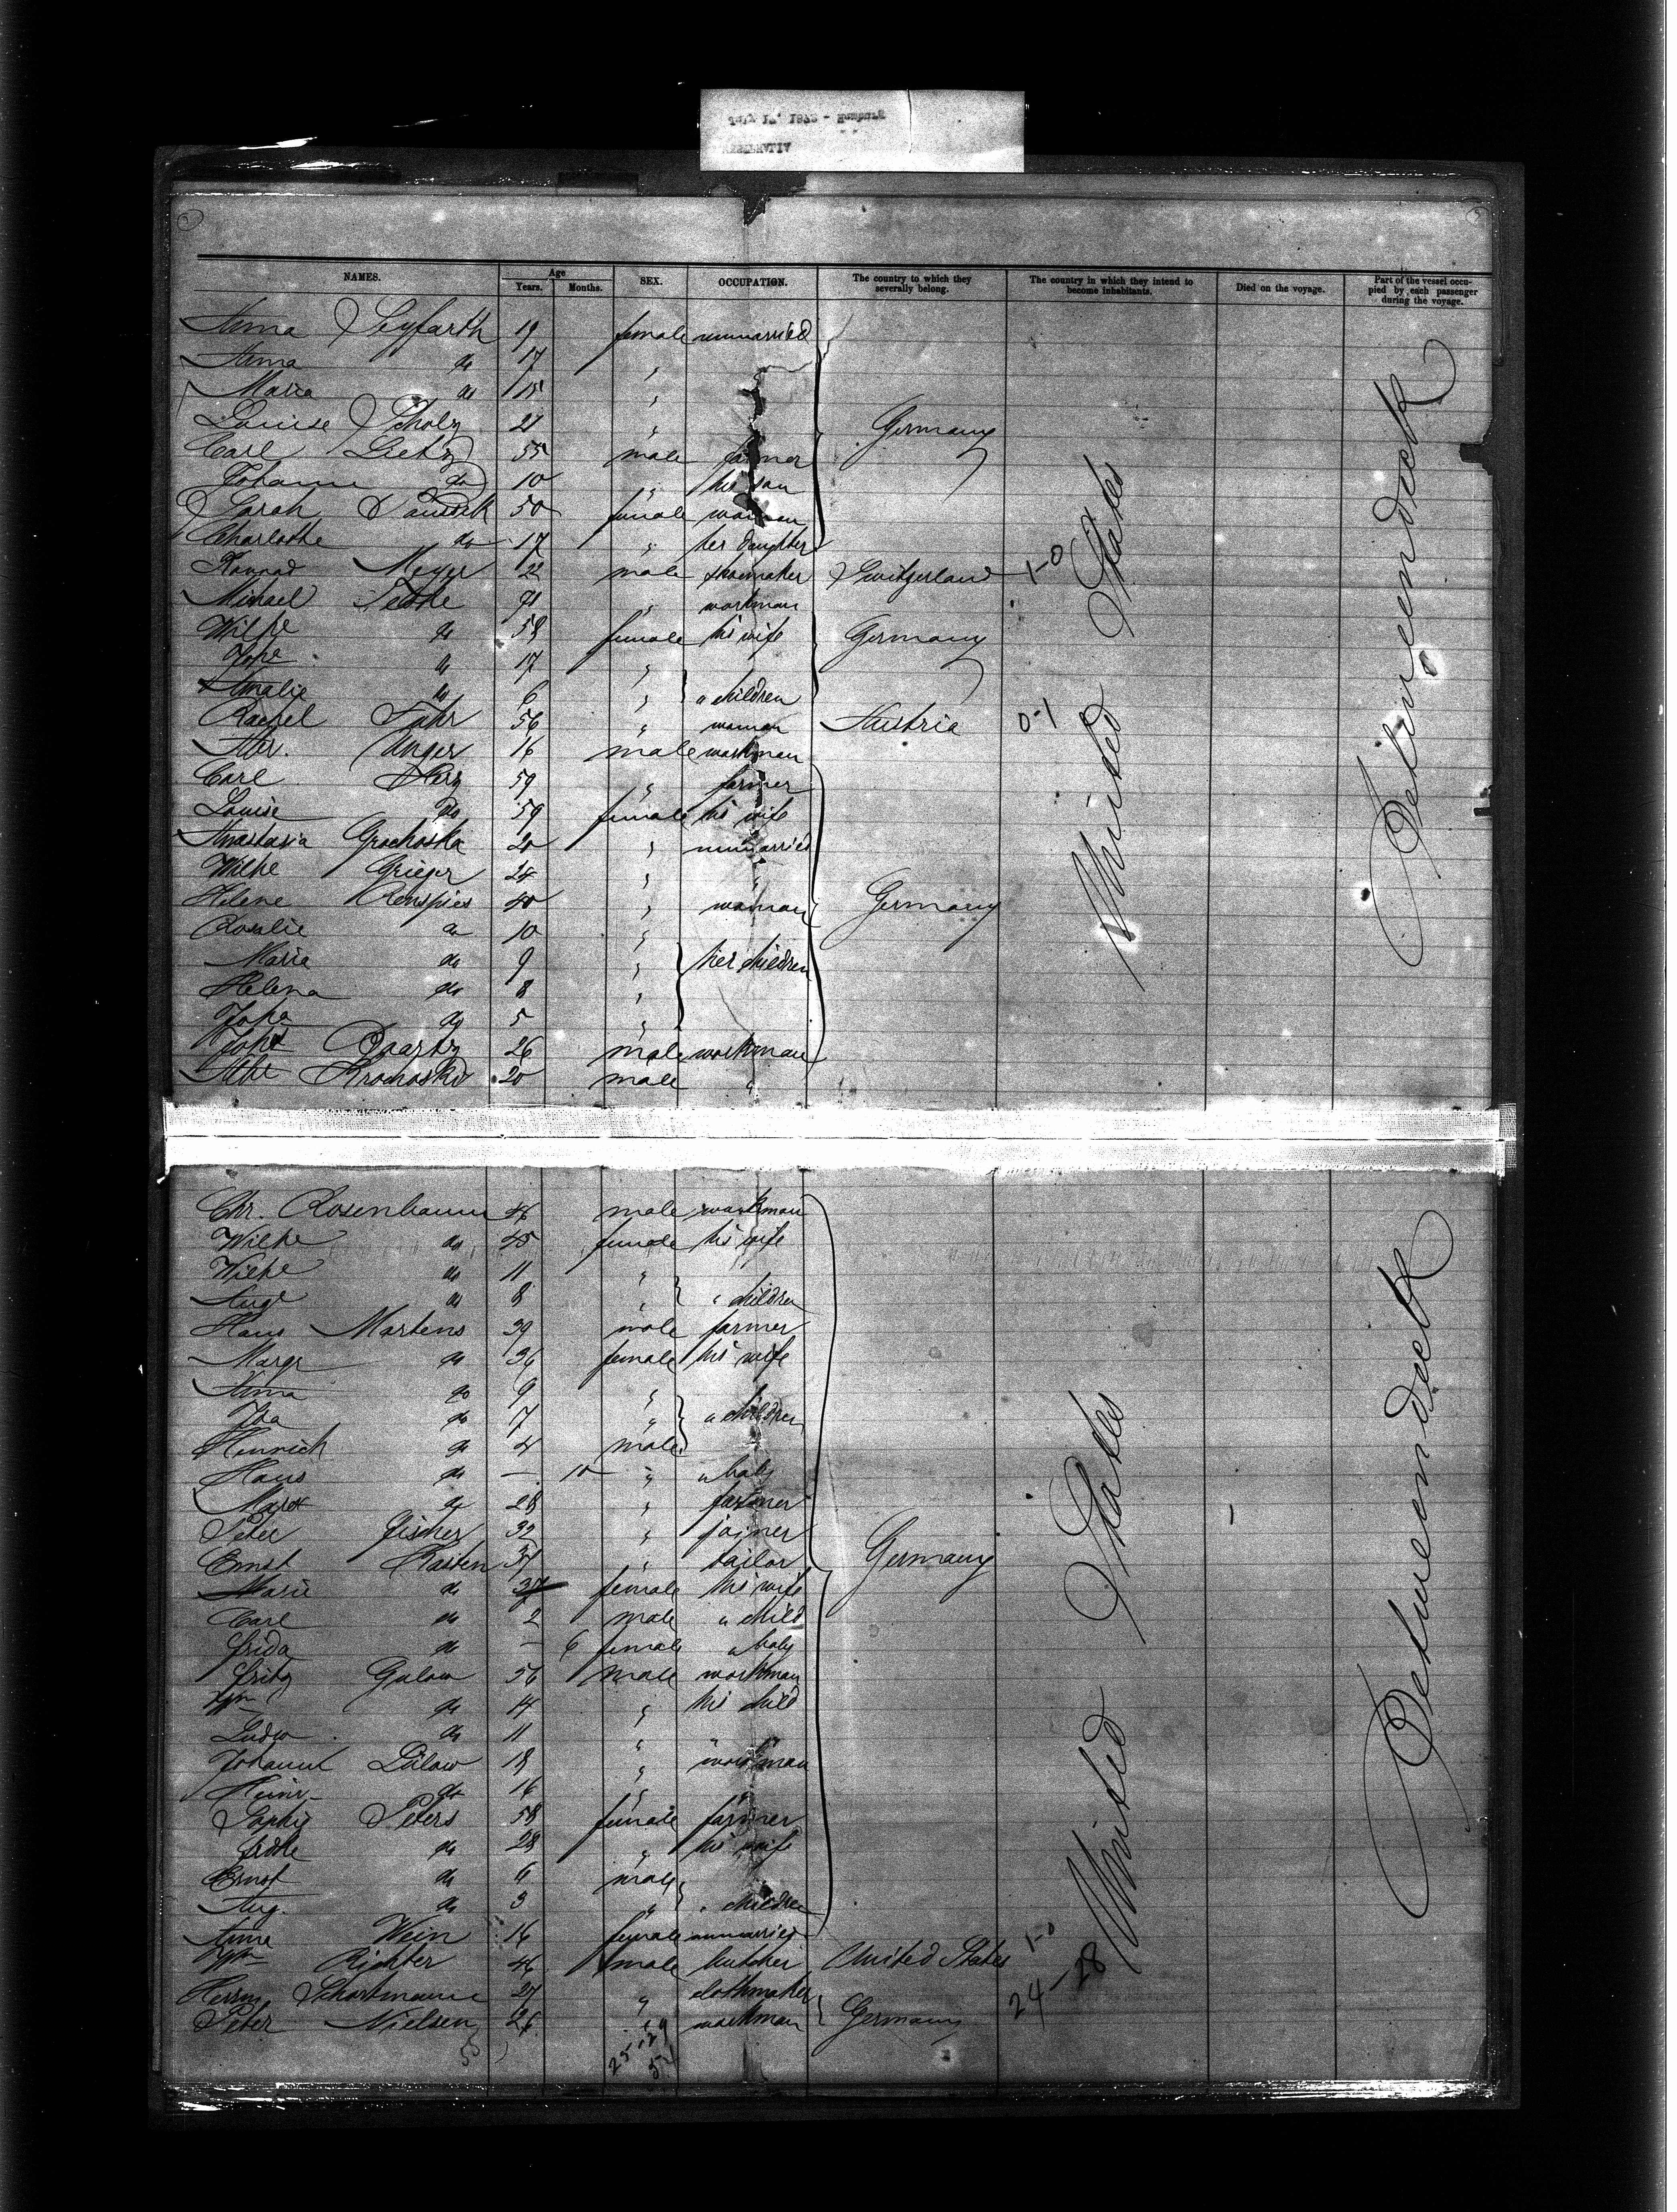 NAMES. Age Years. Months. SEX. OCCUPATION. The country to which they severally belong. The country in which they intend to become inhabitants. Died on the voyage. Part of the vessel occupied by each passenger during the voyage.
Anna Seyfarth 19 female unmarried
Anna do 17 "
Maria do 15 "
Louise Scholz 21 " Germany
Carl Lietz 55 male farmer
Johann do 10 " his son
Sarah 50 female woman
Charlothe do 17 " her daughter
Konrad Meyer 22 male shoemaker Switzerland 1-0
Michael " workman
Wilhe do 58 female his wife Germany
Johe do 17 "
Amalie do 6 " " children
Rachel Fahr 56 " woman Austria 0-1
Unger 16 male workman
Carl Herz 59 " farmer
Louise do 59 female his wife
Anastasia Grochoska 20 " unmarried
Wilhe Grieger 24 " "
Helene Renspies 40 " woman Germany
Rosalie do 10 "
Maria do 9 " her children
Helena do 8 "
Johe do 5 "
Joht Quartz 26 male workman
Albt Krochoski 20 male "
United States
Betweendeck
Chr. Rosenbaum 46 male workman
Wilhe do 45 female his wife
Wilhe do 11 "
Auge do 8 " " children
Hans Martens 39 male farmer
Margr do 36 female his wife
Anna do 9 "
Ida do 7 " " children
Heinrich do 4 male
Hans do – 10 " " baby
Marx do 28 " farmer
Peter Fischer 32 " joiner
Ernst Karsten 34 " tailor Germany
Marie do female his wife
Carl do 2 male " child
Frida do – 6 female " baby
Fritz Gulow 56 male workman
Wm do 14 " his child
Ludw do 11 " "
Johann Bülow 18 " workman
Heinr. do 16 "
Sophie Peters 58 female farmer
do 28 " his wife
Ernst do 6 male
Aug. do 3 " " children
Anna Wein 16 female unmarried
Wm Richter 46 male butcher United States 1-0
Herrm Schortmann 27 " clothmaker 24-28
Peter Nielsen 26 " workman Germany
55 25-29
54
United States
Betweendeck